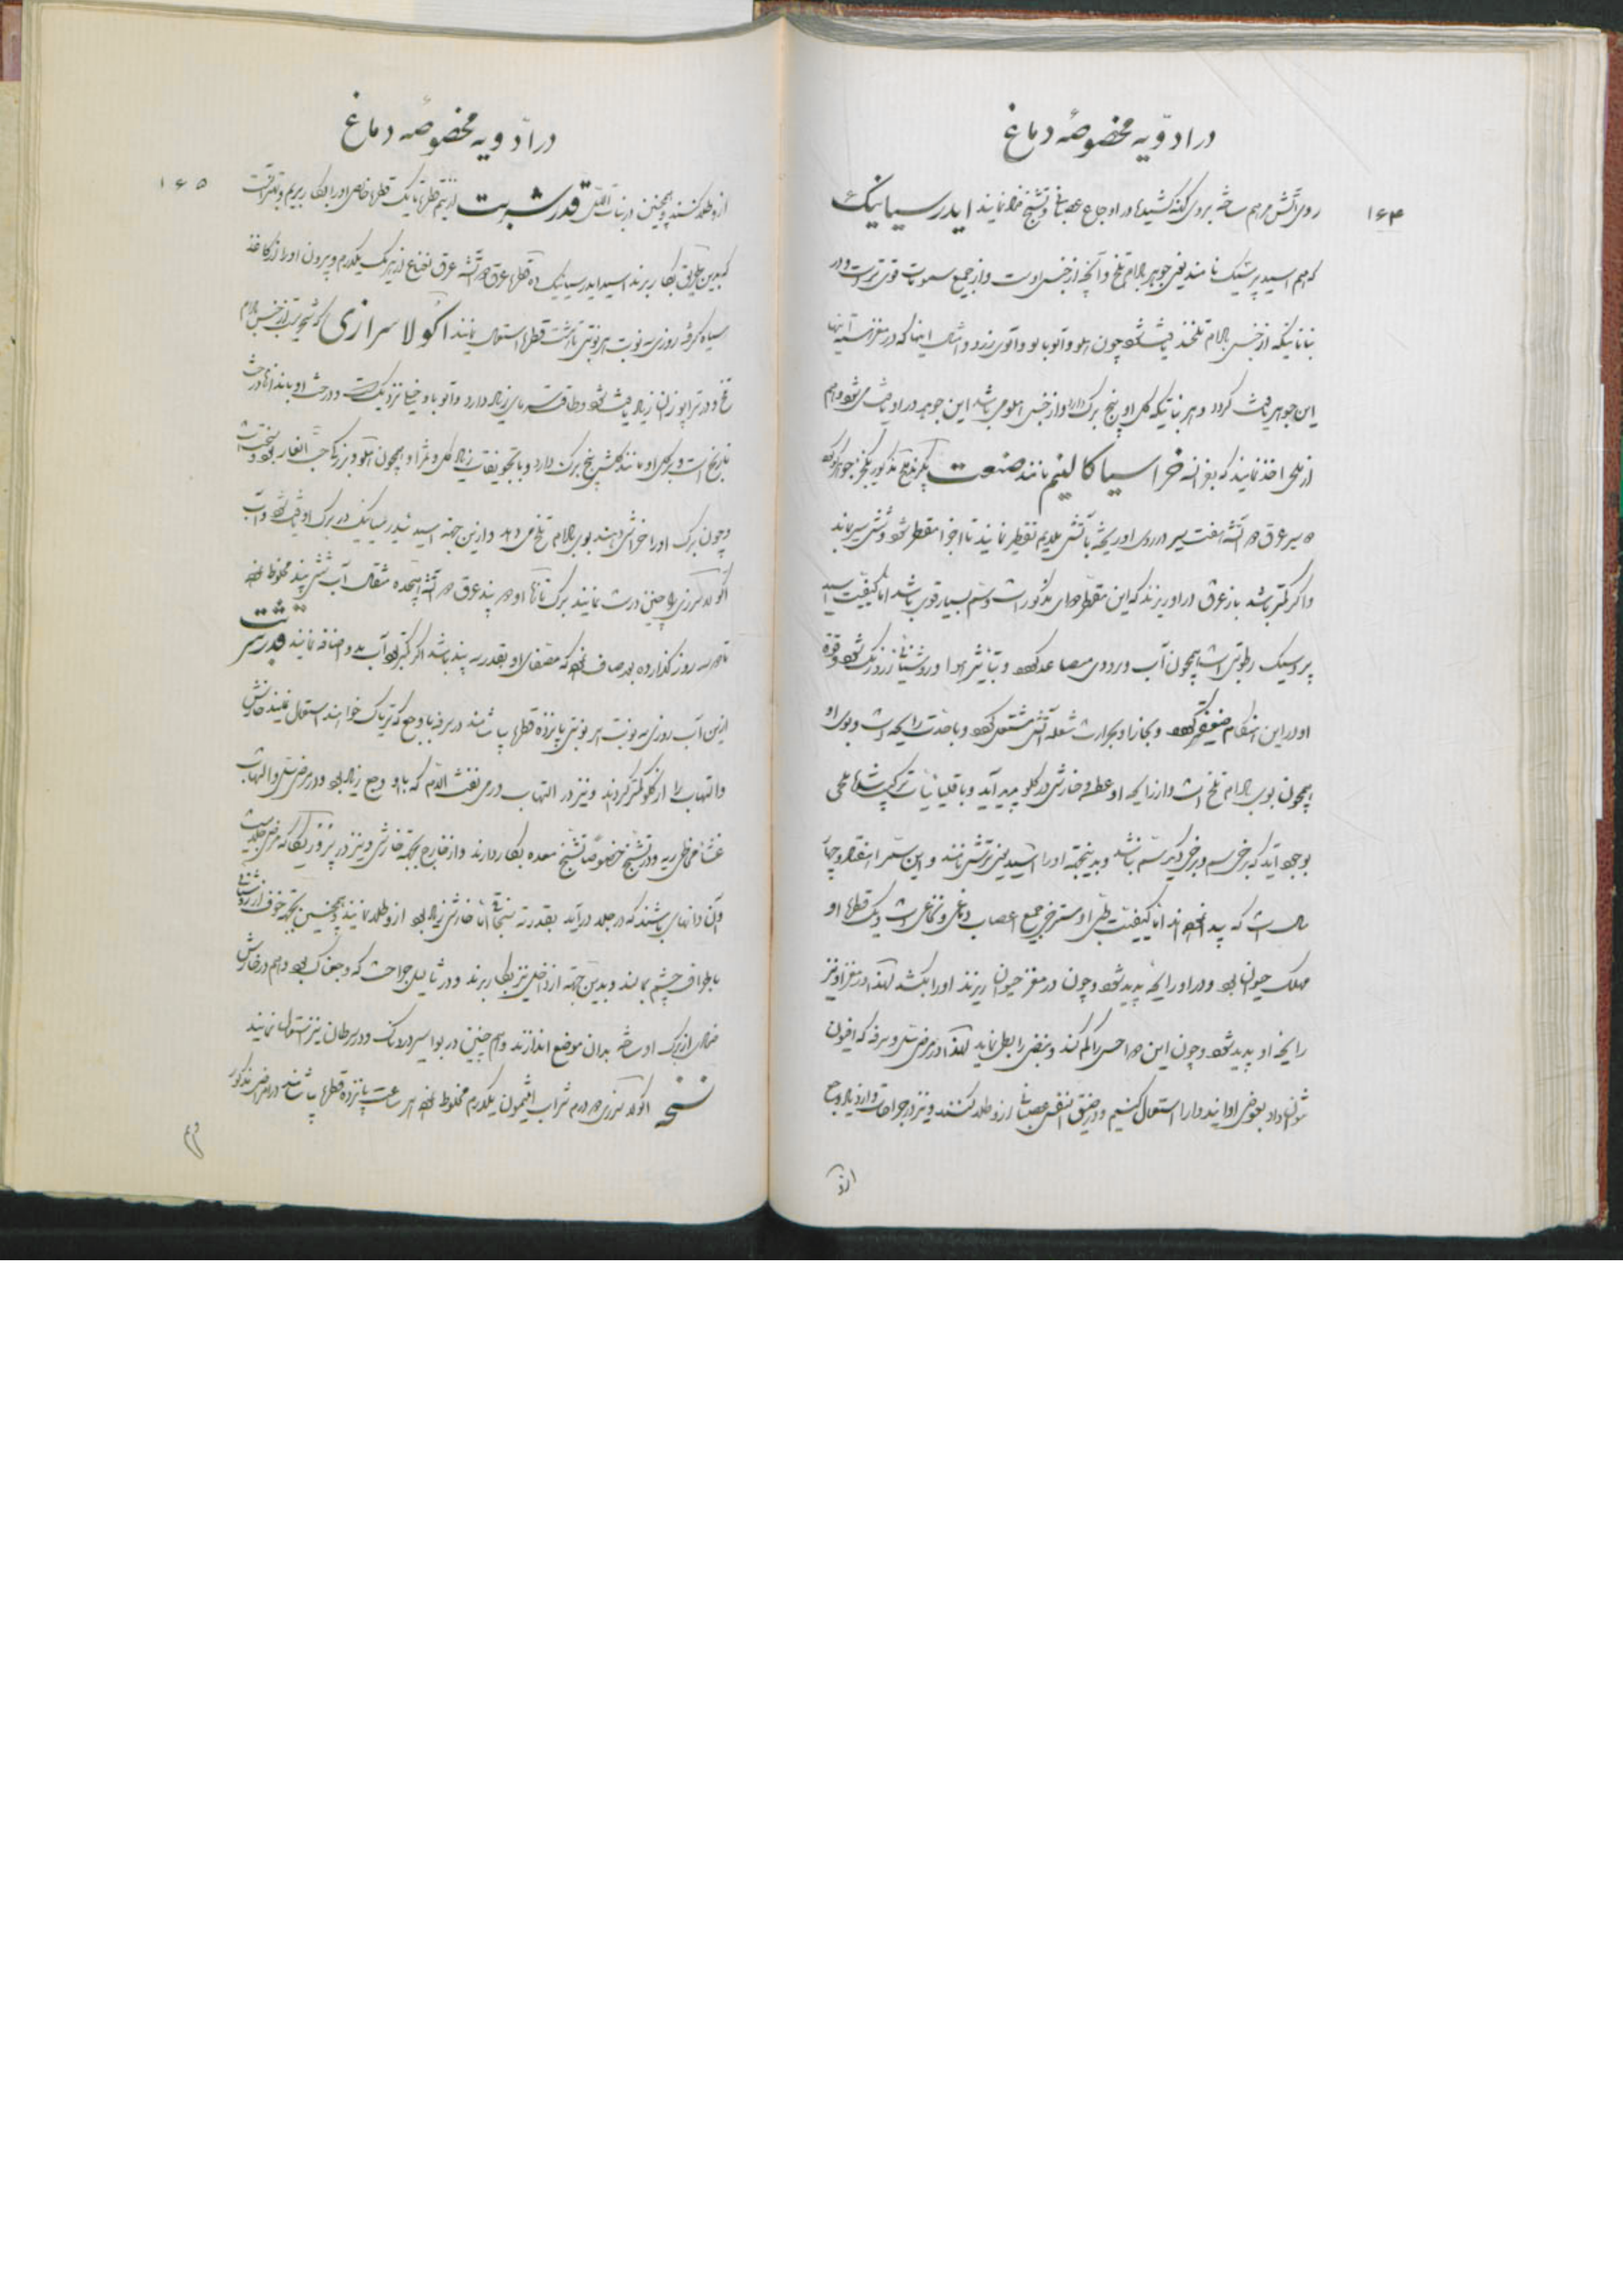 در ادویه مخصوصه دماغ
۱۶۴
روی آتش مرهم ساخته بروی کتفه کشیده در اوجاع عصبانی و تشنج طلا نمایند ایدرسیانیک
که هم اسید پرسیک نامند یعنی جوهر بادام تلخ و آنچه از جنس اوست و از جمیع سمومات قوی‌تر است و در
نباتاتیکه از جنس بادام تلخند یافت شود چون هلو و آلوبالو و آلوی زرد و امثال اینها که در مغز هسته آنها
این جوهر یافت گردد و هر نباتیکه گل او پنج برگ دارد و از جنس هلو می باشد این جوهر در او یافت می شود و هم
از ملحی اخذ نمایند که بفرانسه خراسیاکالینم نامند صنعت بگیرند ملح مذکور یکجزء جوهر گوگرد
سیر عرق دو آتشه هفت سیر در روی او ریخته بآتش ملایم تقطیر نمایند تا اجزا مقطر شود و شش سیر بماند
و اگر کمتر باشد باز عرق در او ریزند که این مقطر دوای مذکور است و سم بسیار قوی باشد اما کیفیت اسید
پروسیک رطوبتی است همچون آب و بزودی متصاعد گردد و بتأثیر هوا و روشنائی زرد رنگ شود و قوه
او در این هنگام ضعیفتر گردد و بخار او بحرارت شعله آتش مشتعل گردد و با حدت رایحه است و بوی او
همچون بوی بادام تلخ است و از رایحه او عطسه و خارش در گلو پدید آید و با قلیائیات ترکیب شده ملحی
بوجود آید که برخی سم و برخی دیگر سم نباشد و بدینجهة او را اسید یعنی ترشی نامند و این سم را هفتاد و چهار
سال است که پیدا نموده اند اما کیفیت طبی او مسترخی جمیع اعصاب دماغی و نخاعی است و یک قطره او
مهلک حیوان بود و در او رایحه پدید شود و چون در مغز حیوان ریزند او را بکشد لهذا در مغز او نیز
رایحه او پدید شود و چون این دوا حس را کم کند و نبض را بطی نماید لهذا در مرض سل و سرفه که افیون
نتوان داد بعوض او این دوا را استعمال کنیم و در ضیق النفس عصبانی از او طلا کنند و نیز در جراحات با درد زیاد وجع
از او
در ادویه مخصوصه دماغ
۱۶۵
از او طلا کنند و همچنین در نبات اللیل قدر شربت از نیم قطره تا یک قطره خالص او را بکار بریم و بهتر آنست
که بدین طریق بکار برند اسید ایدرسیانیک ده قطره عرق دو آتشه عرق نعناع از هر یک یکدرم و بیرون او را از کاغذ
سیاه گرفته روزی سه نوبت هر نوبتی تا هشت قطره استعمال نمایند اکولاسرازی که شجریست از جنس بادام
تلخ و در ترابوزان زیاد یافت شود و طاقت سرمای زیاد دارد و آلوبالو خیلی نزدیک است و درخت او مانند درخت
نارنج است و برگ او مانند گلش پنج برگ دارد و با تجویفات زیاد گل و ثمر او همچون هلو و بزرگی حب الغار بود و سخت است
و چون برگ او را خراش دهند بوی بادام تلخ می دهد و از این جهة اسید ئیدرسیانیک در برگ او یافت شود و آب
اکولاسرزی را چنین درست نمایند برگ تازه او دو پند عرق دو آتشه هیجده مثقال آب شش پند مخلوط نموده
تا دو سه روز گذارده بعد صاف نموده که مصفای او بقدر سه پند باشد اگر کمتر بود آب بر او اضافه نمایند قدر شربت
ازین آب روزی سه نوبت هر نوبتی پانزده قطره بیاشامند در سرفه با وجع که تریاک خواهند استعمال نمایند خارش
و التهاب را از گلو کمتر گرداند و نیز در التهاب و در نفث الدم که با او وجع زیاد بود و در مرض سل و التهاب
غشاء مخاطی ریه و در تشنج خصوصا تشنج معده بکار دارند و از خارج بجهة خارش و نیز در پزوریکا که مرض جلدیست
و آن دانهای باشند که در جلد درآید بقدر ته سنجاقی اما خارش زیاد بود از او طلا نمایند و همچنین بجهة خوف از روشنائی
باطراف چشم بمالند و بدین جهة از داخل نیز بکار برند و در ثآلیل جراحت که وجعناک بود و هم در خارش
ضمادی از برگ او ساخته بدان موضع اندازند و همچنین در بواسیر دردناک و در سرطان نیز استعمال نمایند
نسخه اکولاسرزی دو درم شراب افیون یکدرم مخلوط نموده هر ساعت پانزده قطره بیاشامند در امراض مذکور